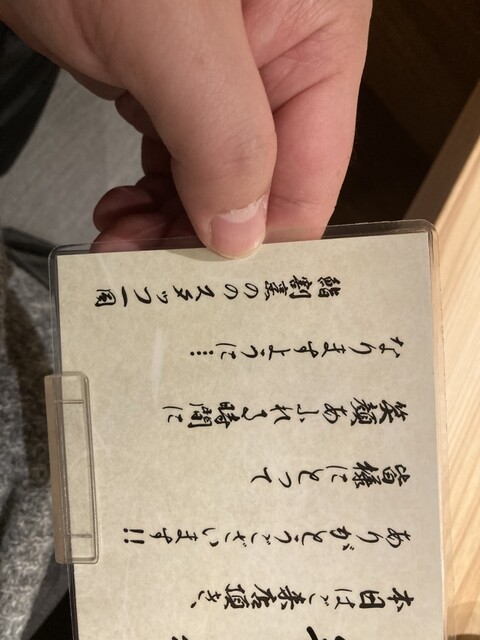 本日はご来店頂き、
ありがとうございます!!
皆様にとって
笑顔あふれる時間に
なりますように…
鮨割烹ののスタッフ一同